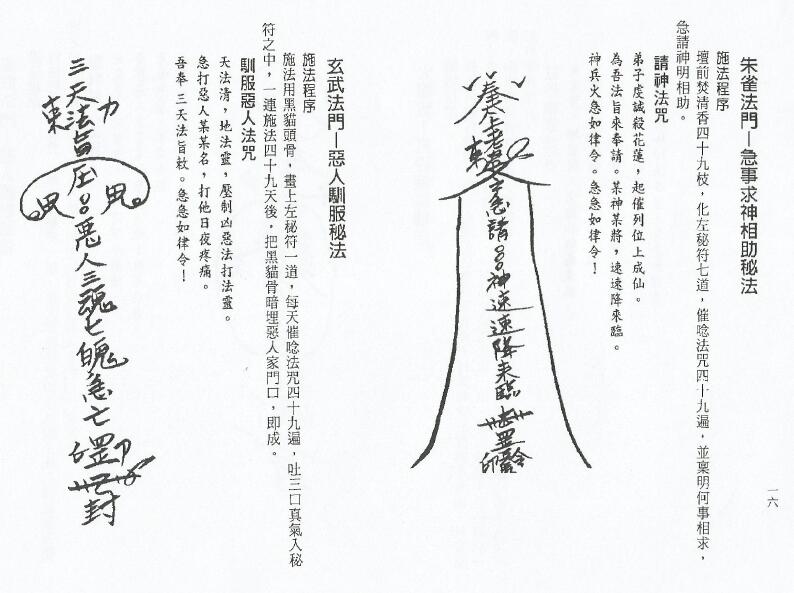 朱雀法門—急事求神相助秘法
施法程序
壇前焚清香四十九枝，化左秘符七道，催唸法咒四十九遍，並稟明何事相求，
急請神明相助。
請神法咒
弟子虔誠殺花蓮，起催列位上成仙。
為吾法旨來奉請。某神某將，速速降來臨。
神兵火急如律令。急急如律令！
急請○○神速速降來臨
罡印
一六
玄武法門—惡人馴服秘法
施法程序
施法用黑貓頭骨，畫上左秘符一道，每天催唸法咒四十九遍，吐三口真氣入秘
符之中，一連施法四十九天後，把黑貓骨暗埋惡人家門口，即成。
馴服惡人法咒
天法清，地法靈，壓制凶惡法打法靈。
急打惡人某某名，打他日夜疼痛。
吾奉三天法旨敕。急急如律令！
三天法旨压○○惡人三魂七魄急亡
罡印封